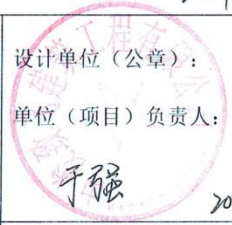 设计单位（公章）：
单位（项目）负责人：
于强
20